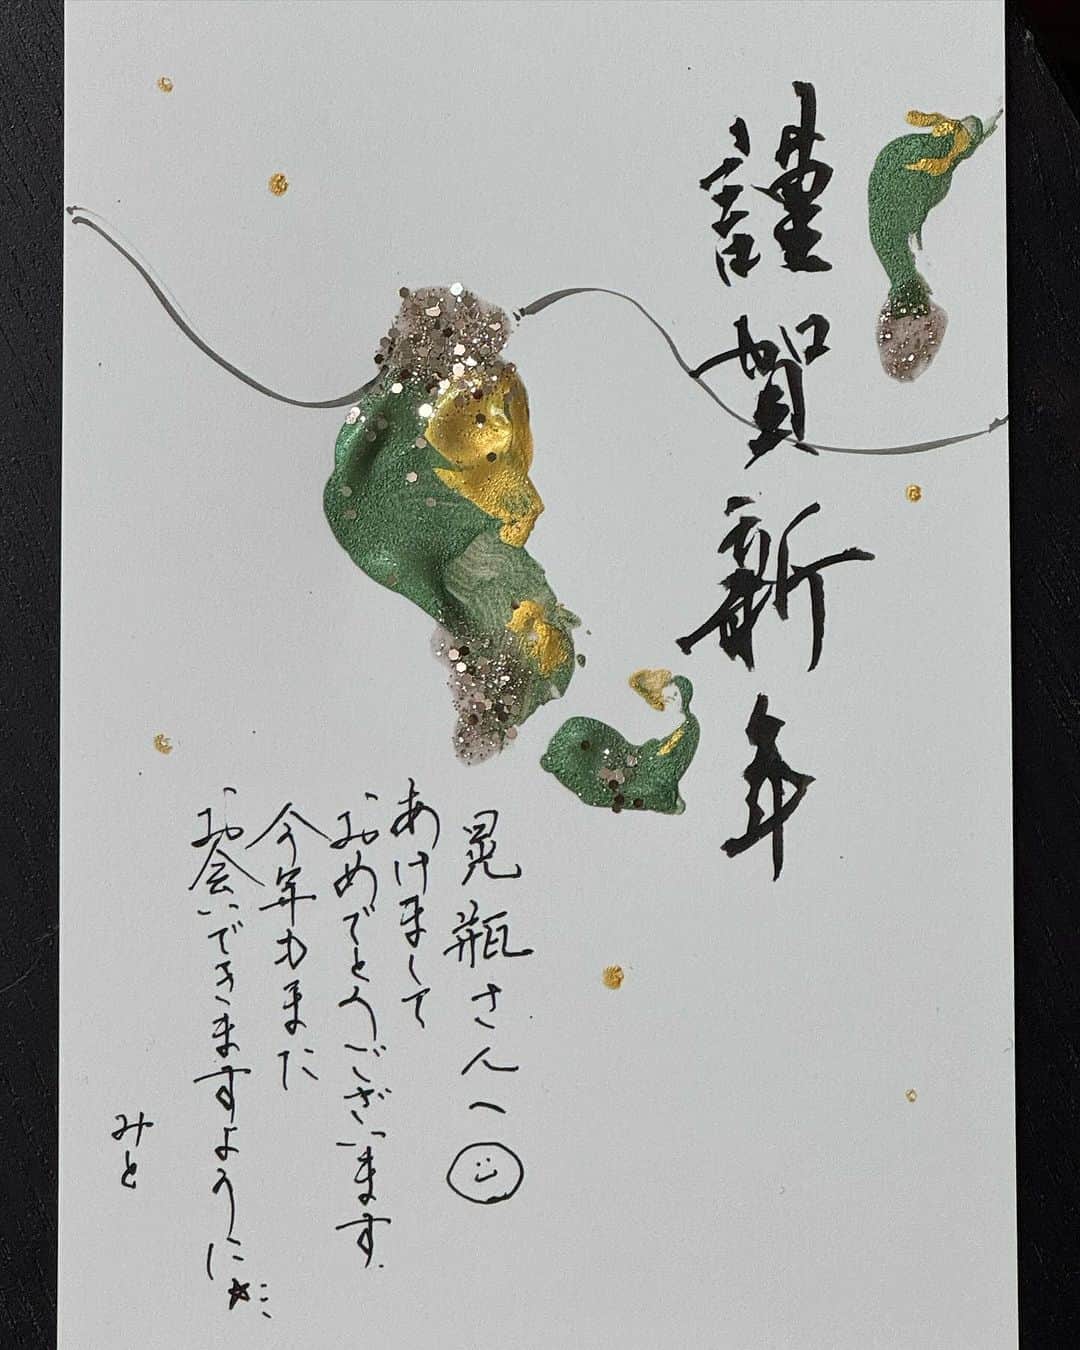 謹賀新年
晃瓶さんへ
あけまして
おめでとうございます
今年もまた
お会いできますように
みと